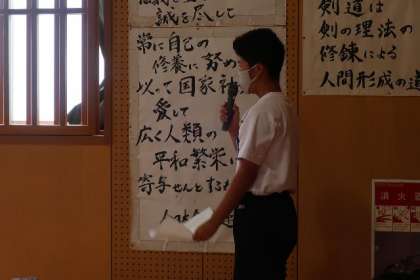 誠を尽して
常に自己の
修養に努め
以って国家社
愛して
広く人類の
平和繁栄に
寄与せんとする
剣道は
剣の理法の
修錬による
人間形成の道
消火器